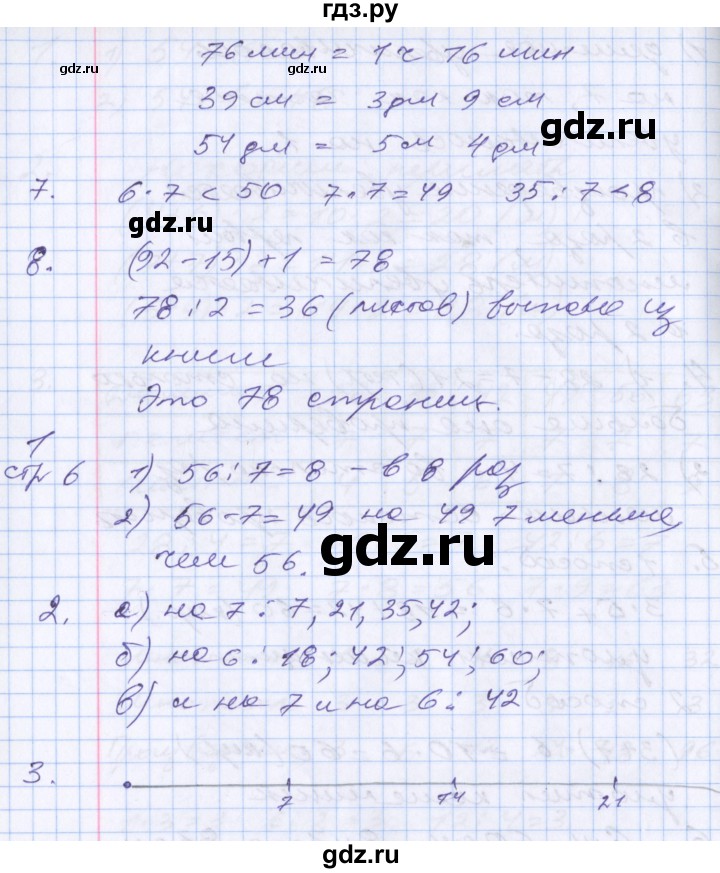 гдз.ру
76 мин = 1 ч 16 мин
39 см = 3 дм 9 см
54 дм = 5 м 4 дм
7. 6 · 7 < 50 7 · 7 = 49 35 : 7 < 8
8. (92 - 15) + 1 = 78
78 : 2 = 36 (листов) выпало из
книги
Это 78 страниц.
1
стр 6 1) 56 : 7 = 8 - в 8 раз
2) 56 - 7 = 49 на 49 7 меньше,
чем 56.
2. а) на 7 : 7, 21, 35, 42;
б) на 6 : 18; 42; 54; 60;
в) и на 7 и на 6 : 42
3. 7 14 21
gdz.ru
gdz.ru
gdz.ru
gdz.ru
gdz.ru
gdz.ru
gdz.ru
gdz.ru
gdz.ru
gdz.ru
gdz.ru